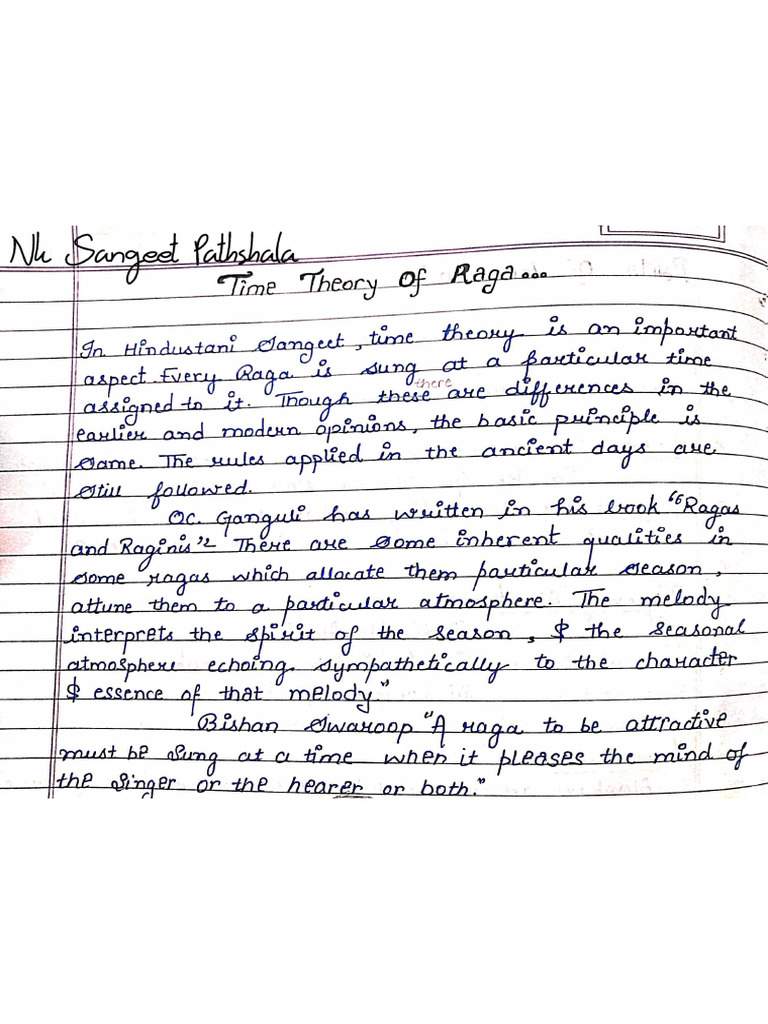 Nk Sangeet Pathshala
Time Theory Of Raga...
In Hindustani Sangeet, time theory is an important
aspect. Every Raga is sung at a particular time
assigned to it. Though these there are differences in the
earlier and modern opinions, the basic principle is
Same. The rules applied in the ancient days are
Still followed.
Oc. Ganguli has written in his book "Ragas
and Raginis" There are some inherent qualities in
some ragas which allocate them particular season,
attune them to a particular atmosphere. The melody
interprets the spirit of the season, & the seasonal
atmosphere echoing sympathetically to the character
& essence of that melody"
Bishan Swaroop "A raga to be attractive
must be sung at a time when it pleases the mind of
the singer or the hearer or both."